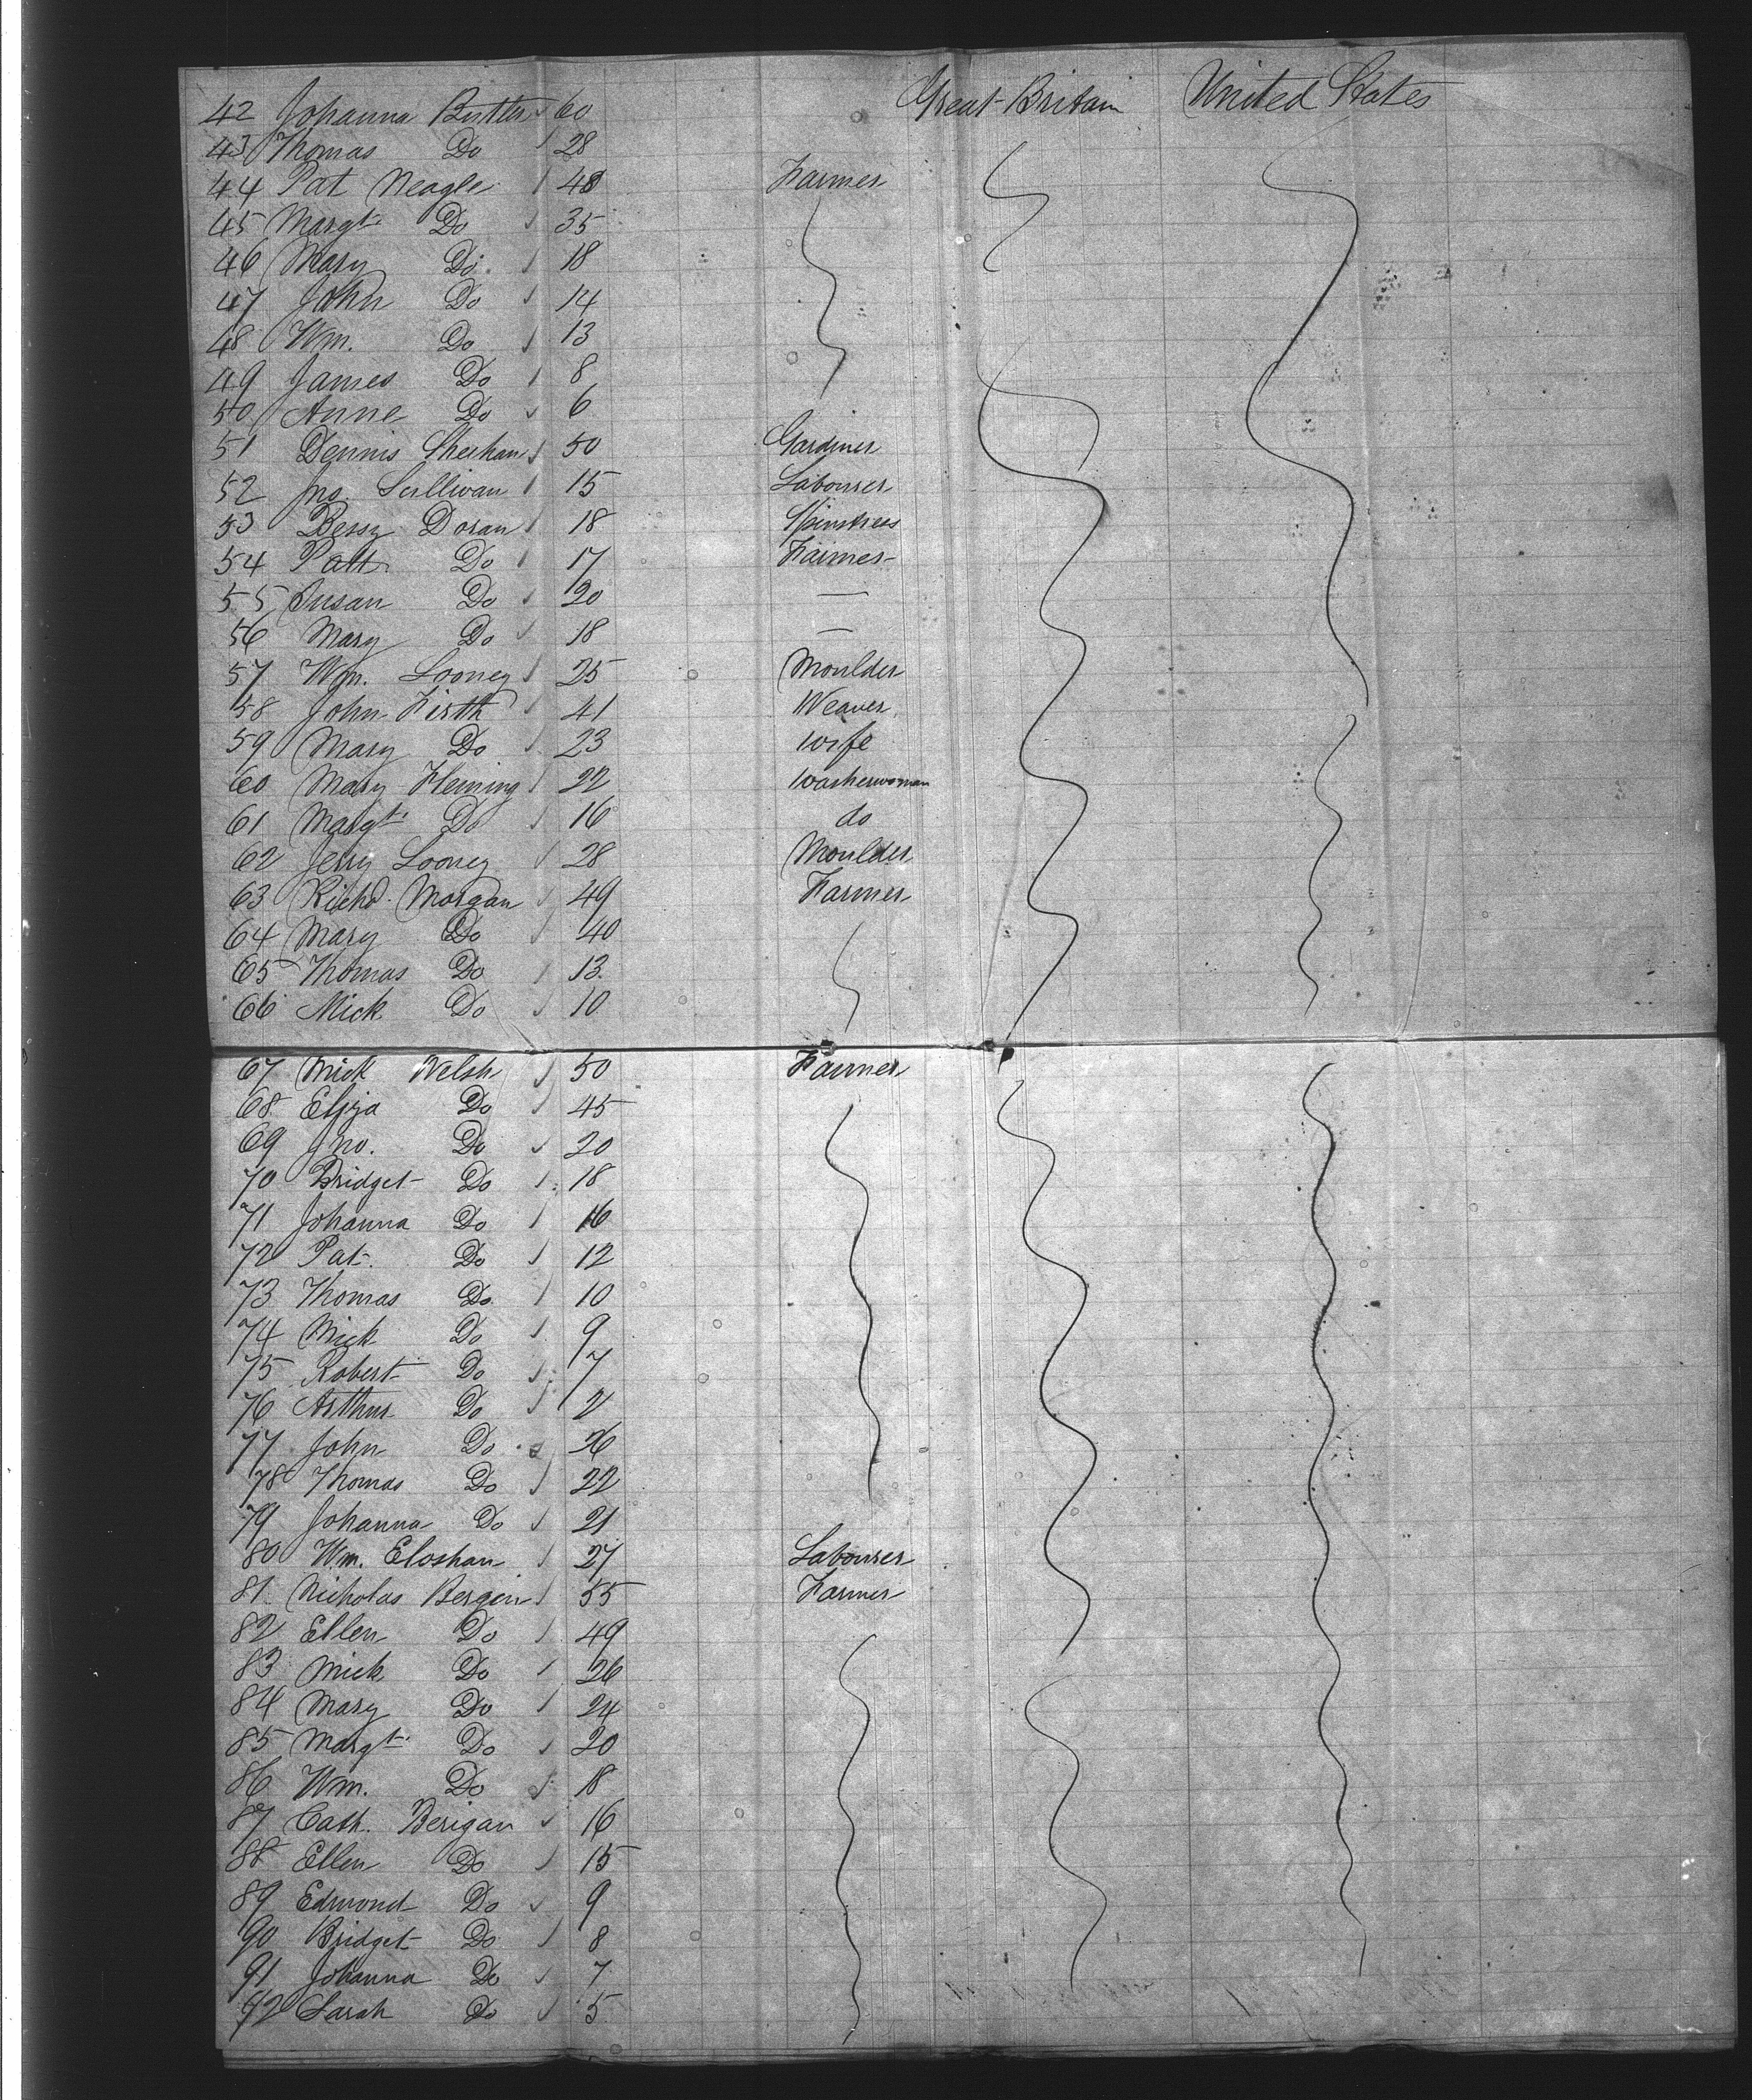 42 Johanna Butler 60 Great Britain United States
43 Thomas Do 28
44 Pat Neagle 48 Farmer
45 Margt. Do 35
46 Mary Do. 18
47 John Do 14
48 Wm. Do 13
49 James Do 8
50 Anne Do 6
51 Dennis Sheehan 50 Gardiner
52 Jno. Sullivan 15 Labourer
53 Bessy Doran 18 Spinstress
54 Patt. Do 17 Farmer
55 Susan Do 20 —
56 Mary Do 18 —
57 Wm. Looney 25 Moulder
58 John Firth 41 Weaver
59 Mary Do 23 Wife
60 Mary Fleming 22 Washerwoman
61 Margt. Do 16 do
62 Jerry Looney 28 Moulder
63 Richd. Morgan 49 Farmer
64 Mary Do 40
65 Thomas Do 13
66 Mick Do 10
67 Mick Welsh 50 Farmer
68 Eliza Do 45
69 Jno. Do 20
70 Bridget Do 18
71 Johanna Do 16
72 Pat. Do 12
73 Thomas Do 10
74 Mick Do 9
75 Robert Do 7
76 Arthur Do 2
77 John Do 26
78 Thomas Do 22
79 Johanna Do 21
80 Wm. Eloshan 27 Labourer
81 Nicholas Bergin 55 Farmer
82 Ellen Do 49
83 Mick Do 26
84 Mary Do 24
85 Margt. Do 20
86 Wm. Do 18
87 Cath. Berigan 16
88 Ellen Do 15
89 Edmond Do 9
90 Bridget Do 8
91 Johanna Do 7
92 Sarah Do 5